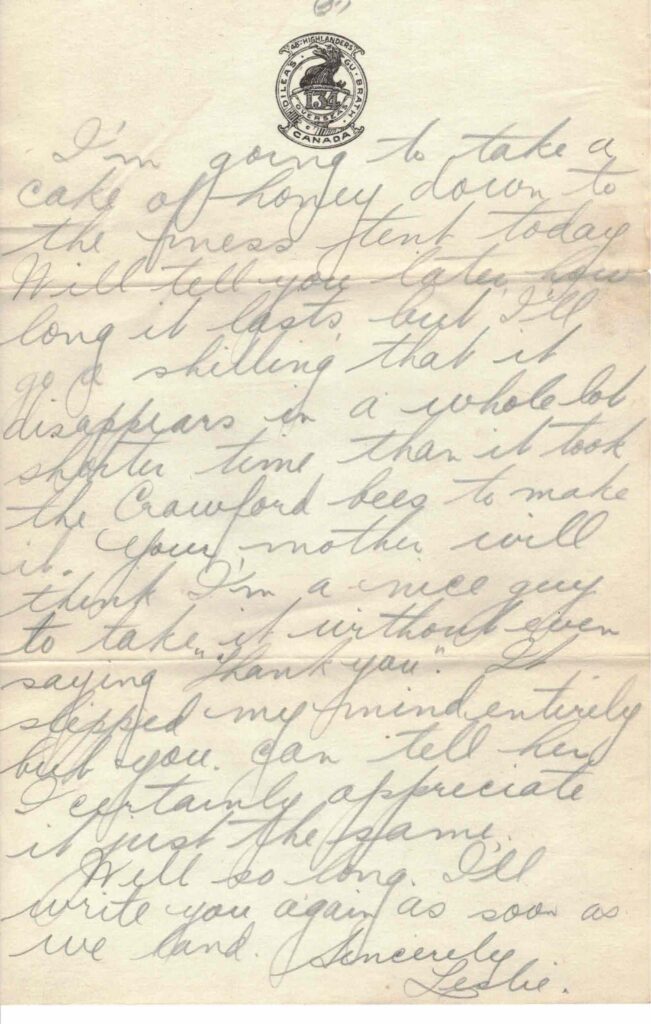 (5.)
48TH HIGHLANDERS
DILEAS GU BRATH
134
OVERSEAS
CANADA
I'm going to take a
cake of honey down to
the mess tent today
Will tell you later how
long it lasts, but I'll
go a shilling that it
disappears in a whole lot
shorter time than it took
the Crawford bees to make
it. Your mother will
think I'm a nice guy
to take it without even
saying "Thank you". It
slipped my mind entirely
but you can tell her
I certainly appreciate
it just the same.
Will so long. I'll
write you again as soon as
we land. Sincerely
Leslie.